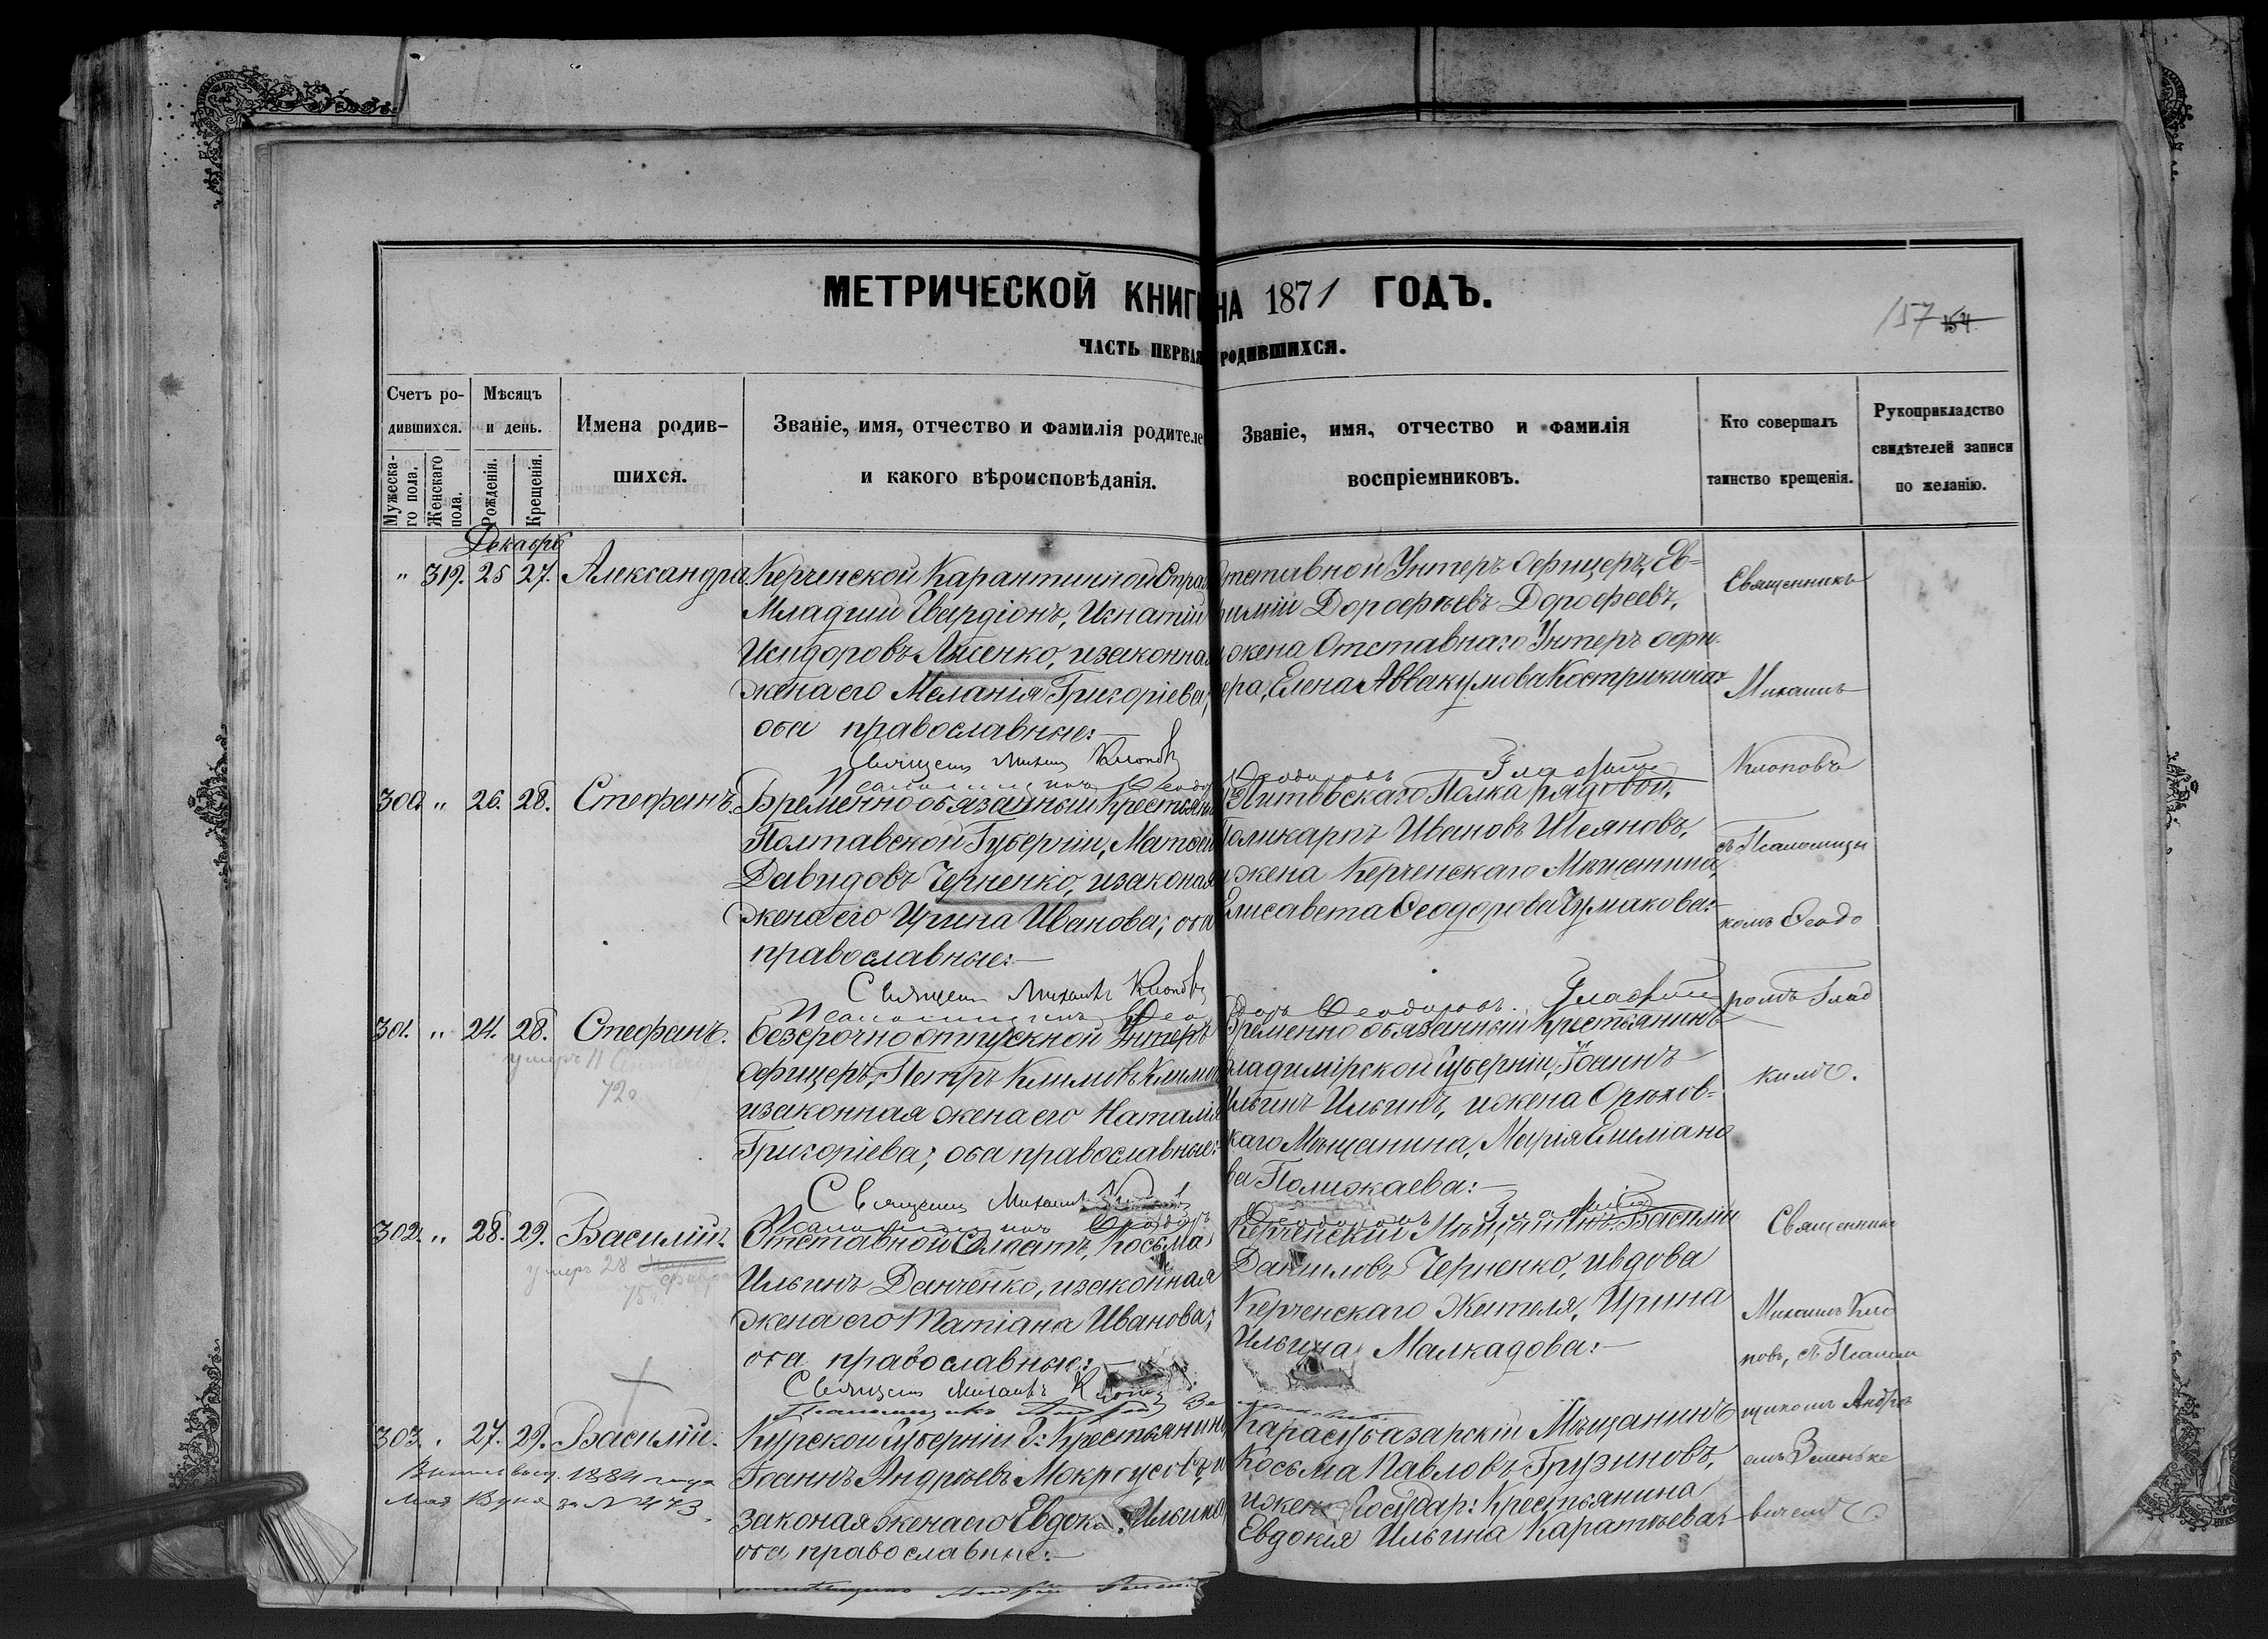 МЕТРИЧЕСКОЙ КНИГИ НА 1871 ГОДЪ.
157 154.
ЧАСТЬ ПЕРВАЯ РОДИВШИХСЯ.
Счетъ родившихся.
Мужескаго пола.
Женскаго пола.
Мѣсяцъ и день.
Рожденія.
Крещенія.
Имена родившихся.
Званіе, имя, отчество и фамилія родителе
и какого вѣроисповѣданія.
Званіе, имя, отчество и фамилія
воспріемниковъ.
Кто совершалъ
таинство крещенія.
Рукоприкладство
свидѣтелей записи
по желанію.
Декабрь
" 319. 25 27. Александра.
Керченской Карантинной Стра
Младшій Гвардіонъ, Игнатій
Исидоровъ Лысенко, и законная
жена его Меланія Григоріева,
оба православные:—
Священ Михаил Клоповъ
Отставной Унтеръ Офицеръ, Ев-
фимій Дорофѣевъ Дорофеевъ,
жена Отставнаго Унтеръ офи-
цера, Елена Аввакумова Кострикина
Священникъ
Михаилъ
Клоповъ
съ Псаломщи
комъ Ѳеодо
ромъ Глад
кимъ.
300. " 26. 28. Стефанъ.
Временно обязанный Крестьянин
Полтавской Губерніи, Матѳей
Давидовъ Черненко, и законая
жена его Ирина Иванова; оба
православные:—
Священ Михаилъ Клоповъ
Литовскаго Полка рядовой,
Поликарпъ Ивановъ Шеяновъ,
и жена Керченскаго Мѣщанина,
Елисавета Ѳеодорова Чумакова:
301. " 24. 28. Стефанъ.
умеръ 11 Сентября
720
Безсрочно отпускной Унтеръ
Офицеръ, Петръ Климовъ Климов
и законная жена его Наталія
Григоріева; оба православные:
Священ Михаилъ
Временно обязанный Крестьянинъ
Владимірской Губерніи, Іоаннъ
Ильинъ Ильинъ, и жена Орѣхов-
скаго Мѣщанина, Марія Емеліано
ва Полижаева:—
302. " 28. 29. Василій.
умеръ 28
Отставной Солдатъ, Косьма
Ильинъ Данченко, и законная
жена его Татіана Иванова;
оба православные:—
Священ Михаилъ
Керченскій Мѣщанинъ Василій
Даниловъ Черненко, и вдова
Керченскаго Жителя, Ирина
Ильина Малкадова:—
Священникъ
Михаилъ Кло
повъ, съ Псалом
щикомъ Андре
емъ Зинькe
вичемъ
303. " 27. 29. Василій.
1884 года
Мая за N 473.
Курской губерніи Г: Крестьянинъ
Іоаннъ Андреевъ Мокроусовъ, и
законая жена его Ильина
оба православные:—
Карасубазарскій Мѣщанинъ
Косьма Павловъ Грузиновъ,
и жена Государ: Крестьянина
Евдокія Ильина Каратеева